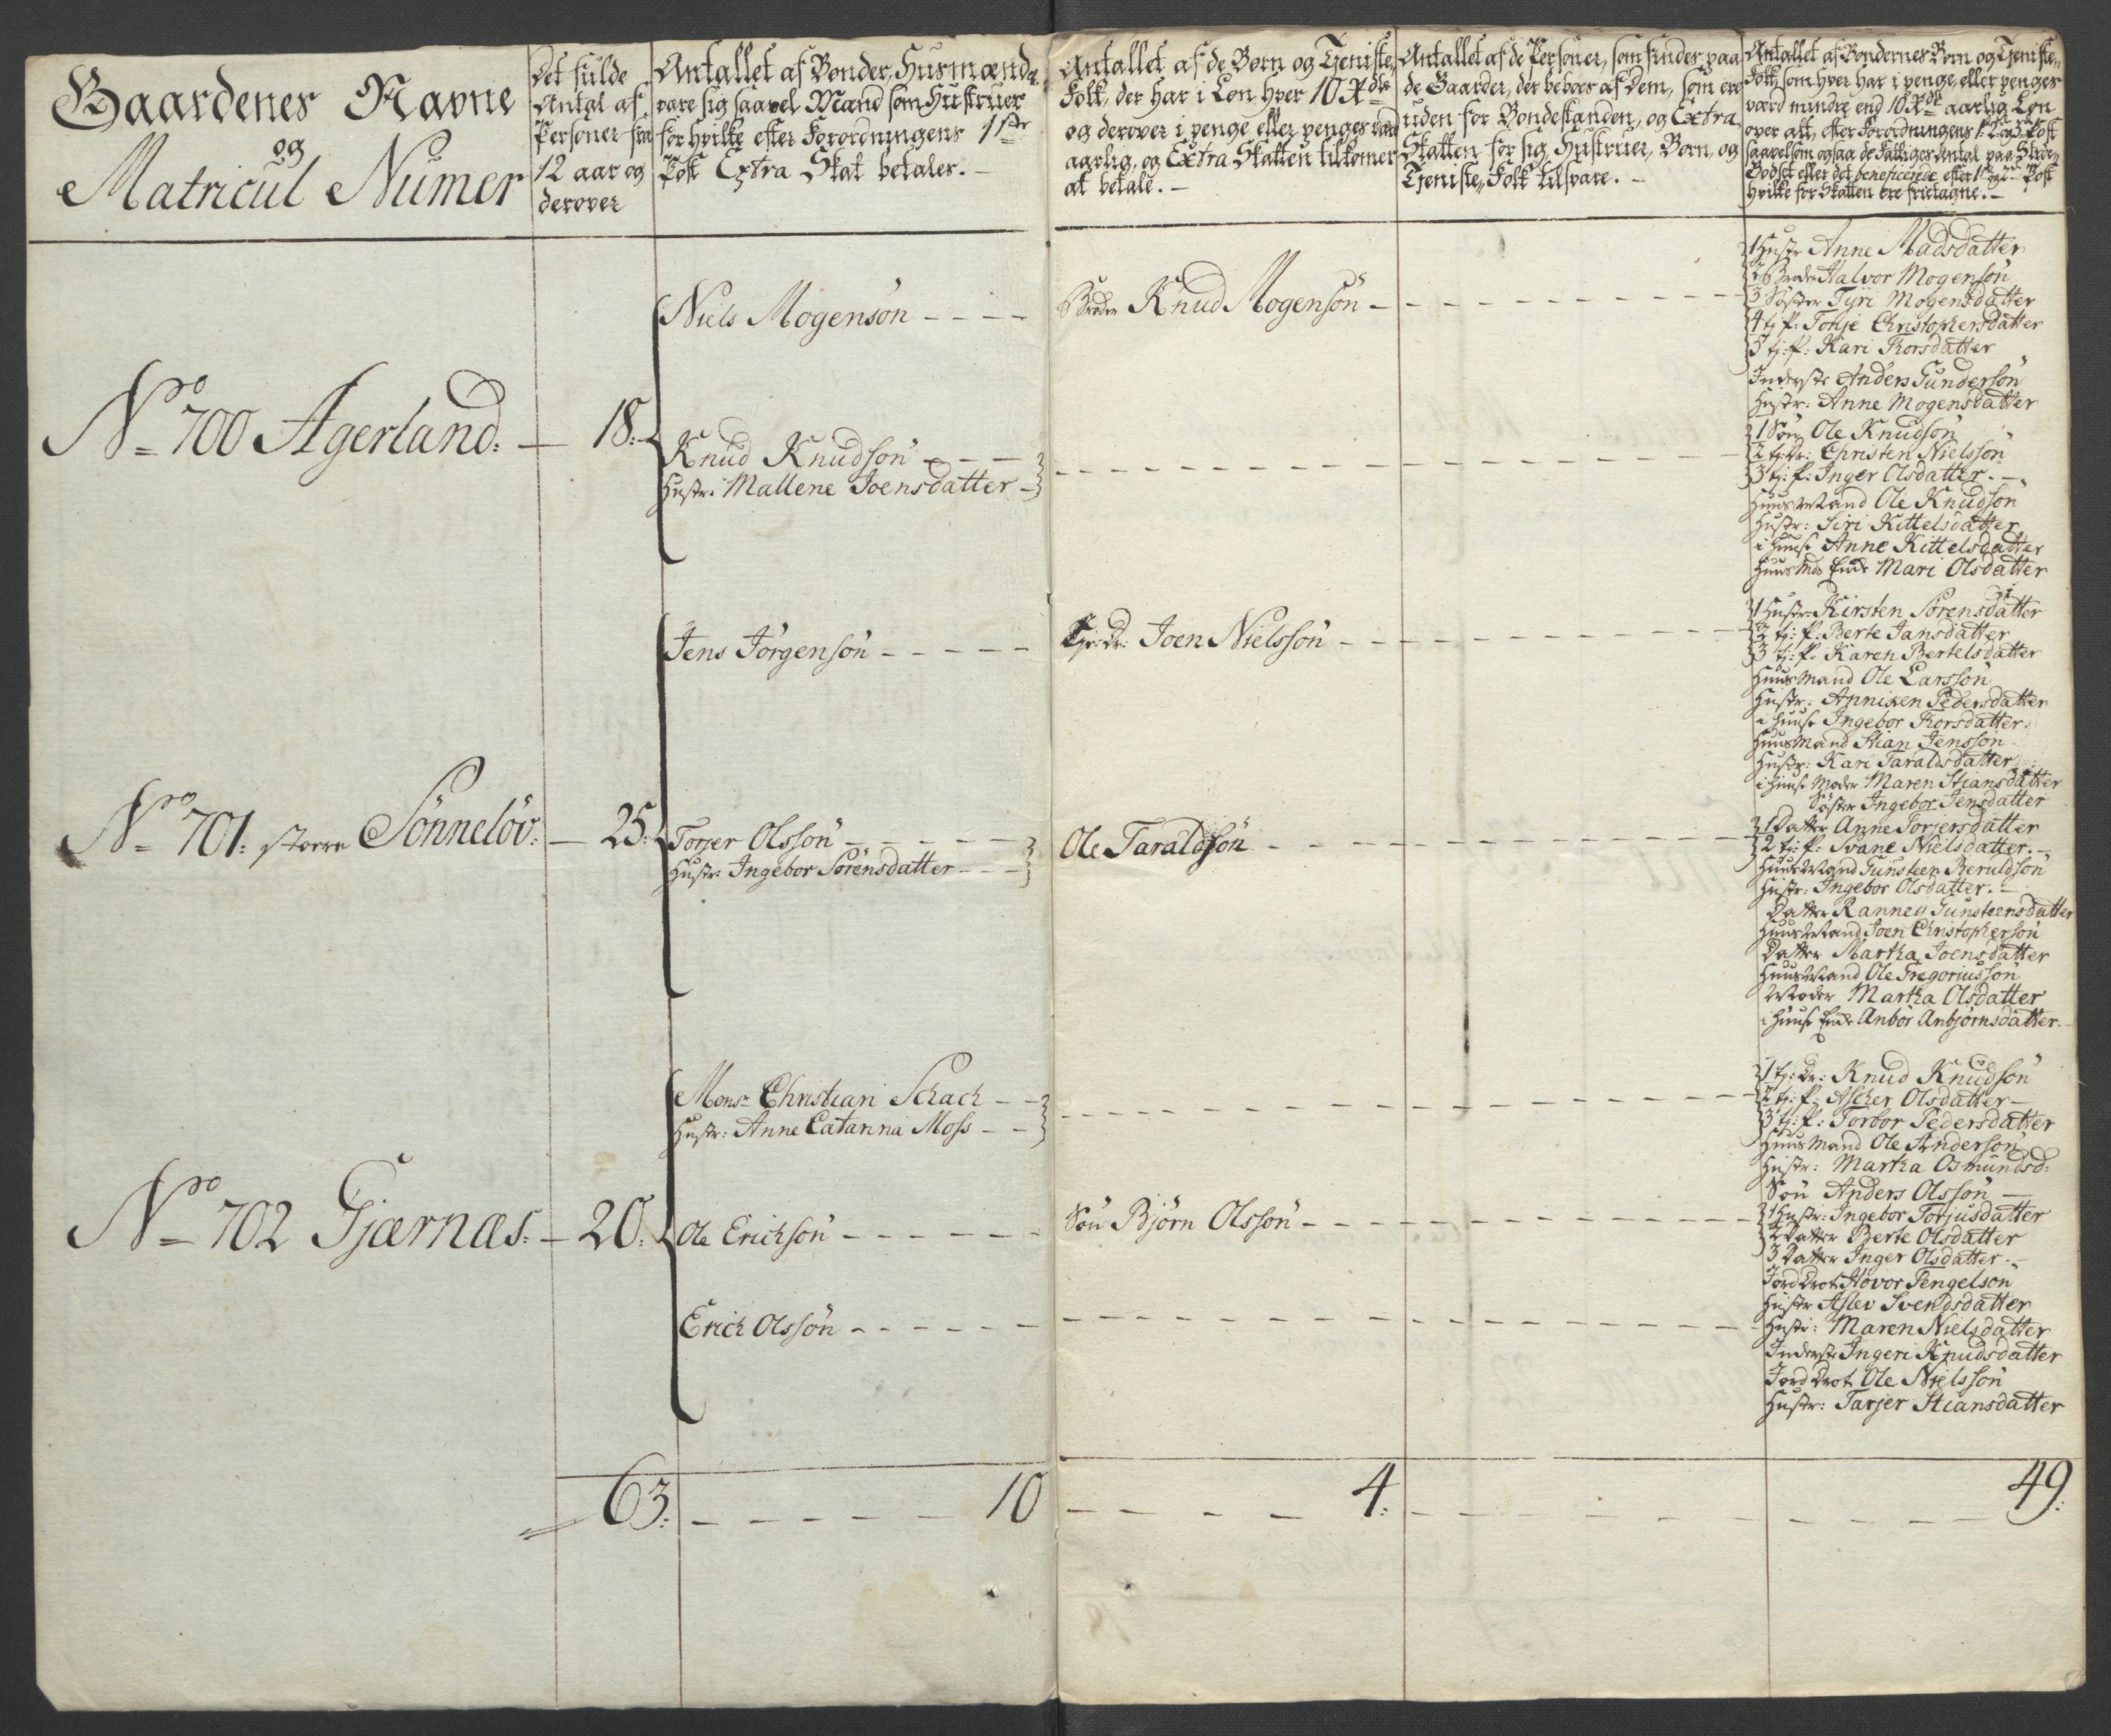 Gaardenes Navne
og
Matricul Numer
Det fulde
Antal af
Personer fra
12 aar og
derover
Antallet af Bønder, Husmænd
være sig saavel Mænd som Hustruer
for hvilke efter Forordningens 1ste
Post Extra Skat betales. –
Antallet af de Børn og Tieniste,,
Folk, der har i Løn hver 10 Rdlr
og derover i penge eller penges værd
aarlig, og Extra Skatten tilkomer
at betale. –
Antallet af de Personer, som findes paa
de Gaarder, der beboes af Dem, som ere
uden for Bondestanden, og Extra
Skatten for sig, Hustruer, Børn, og
Tjeniste,, Folk tilsvare. –
Antallet af Bøndernes Børn og Tjeniste,,
Folk, som hver har i penge, eller penges
værd mindre end 10 Rdlr aarlig Løn
over alt, efter Forordningens Post
saavelsom ogsaa de Fattiges Antal paa
Godset eller det beneficerede efter Post
hvilke for Skatten ere frietagne. –
No 700 Agerland: — 18:
Niels Mogensøn - - - -
Broder Knud Mogensøn - - - -
1 Hustr Anne Madsdatter
2 Broder Halvor Mogensøn
3 Søster Tyri Mogensdatter
4 tj: P: Tonje Christophersdatter
5 tj: P: Kari Thorsdatter
Inderste Anders Gundersøn
Hustr: Anne Mogensdatter
Knud Knudsøn - - - -
Hustr: Mallene Joensdatter -
1 Søn Ole Knudsøn
2 tj: Dr: Christen Nielssøn
3 tj: P: Inger Olsdatter. –
Huusmand Ole Knudsøn
Hustr: Siri Kittelsdatter
i Huuse Anne Kittelsdatter
Huusmds Enke Mari Olsdatter
No 701: større Sönneløv: — 25:
Jens Jørgensøn - - - - -
Tj: Dr: Joen Nielssøn - - - -
1 Hustr: Kirsten Sørensdatter
2 tj: P: Berte Jansdatter
3 tj: P: Karen Bertelsdatter
Huusmand Ole Larssøn
Hustr: Anniken Pedersdatter
i Huuse Ingebor Thorsdatter.
Huusmand Stian Jenssøn
Hustr: Kari Taraldsdatter
i Huuse Moder Maren Stiansdatter
Søster Ingebor Jensdatter
Torjer Olssøn - - - - -
Hustr: Ingebor Sørensdatter - - -
Ole Taraldsøn - - - -
1 Datter Anne Torjersdatter
2 tj: P: Svane Nielsdatter. –
Huusmand Gunsteen Beruldsøn
Hustr: Ingebor Olsdatter. –
Datter Ranney Gunsteensdatter
Huusmand Joen Christophersøn
Datter Martha Joensdatter
Huusmand Ole Gregoriussøn
Moder Martha Olsdatter
i Huuse Enke Anbor Anbjørnsdatter.
No 702 Gjærnæs: — 20:
Monsr Christian Schach - -
Hustr: Anne Catarina Moss - -
1 tj: Dr: Knud Knudsøn
2 tj: P: Ascher Olsdatter –
3 tj: P: Torbor Pedersdatter
Huusmand Ole Andersøn
Hustr: Martha Osmundsd:
Søn Anders Olssøn –
Ole Erichsøn - - - - - -
Søn Bjørn Olssøn - - - -
1 Hustr: Ingebor Torjusdatter
2 Datter Berte Olsdatter
3 Datter Inger Olsdatter. –
Jorddrot Hovor Tengelson
Hustr Aslev Svendsdatter
Erich Olssøn - - - - - -
Hustr: Maren Nielsdatter
Inderste Ingeri Knudsdatter
Jorddrot Ole Nielssøn
Hustr: Tarjer Stiansdatter
63: - - - - - 10 - - - - 4: - - - - - 49: